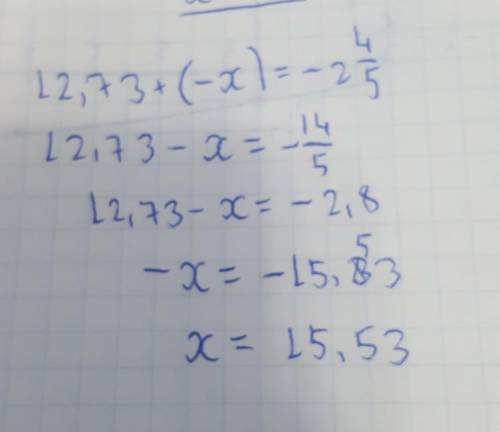 12,73+(-x)=-2 4/5
12,73-x=-14/5
12,73-x=-2,8
-x=-15,53
x=15,53